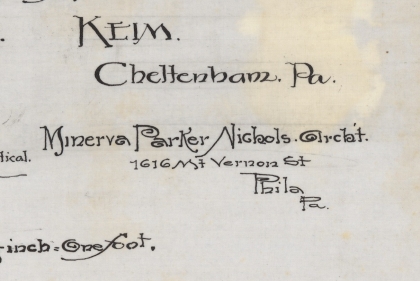 KEIM.
Cheltenham. Pa.
Minerva Parker Nichols. Archt.
tical.
1616 Mt Vernon St
Phila
Pa.
inch = One foot.